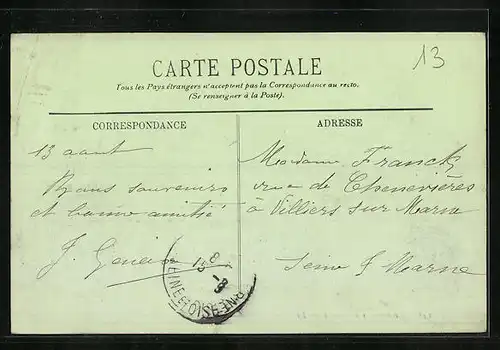 13
CARTE POSTALE
Tous les Pays étrangers n'acceptent pas la Correspondance au recto.
(Se renseigner à la Poste).
CORRESPONDANCE
ADRESSE
13 aout
Bons souvenirs
et bonne amitié
J.
Madame Franck
rue de Chenevières
à Villiers sur Marne
Seine & Marne
SEINE-ET-OISE